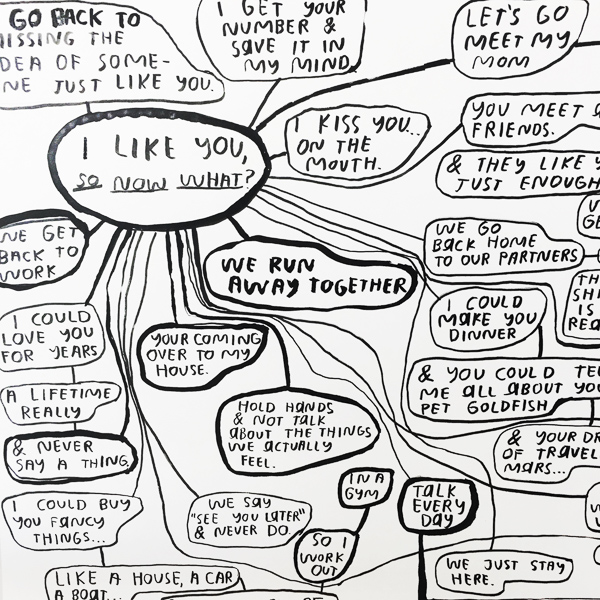 GO BACK TO
MISSING THE
IDEA OF SOME-
ONE JUST LIKE YOU.
I GET YOUR
NUMBER &
SAVE IT IN
MY MIND.
LET'S GO
MEET MY
MOM
I LIKE YOU,
SO NOW WHAT?
I KISS YOU...
ON THE
MOUTH.
YOU MEET
FRIENDS.
& THEY LIKE
JUST ENOUGH
WE GET
BACK TO
WORK
WE RUN
AWAY TOGETHER
WE GO
BACK HOME
TO OUR PARTNERS
IS
I COULD
LOVE YOU
FOR YEARS
YOUR COMING
OVER TO MY
HOUSE.
I COULD
MAKE YOU
DINNER
& YOU COULD
ME ALL ABOUT
PET GOLDFISH
A LIFETIME
REALLY
& NEVER
SAY A THING
HOLD HANDS
& NOT TALK
ABOUT THE THINGS
WE ACTUALLY
FEEL.
& YOUR
OF
MARS...
I COULD BUY
YOU FANCY
THINGS...
WE SAY
"SEE YOU LATER"
& NEVER DO.
IN A
GYM
SO I
WORK
OUT
TALK
EVERY
DAY
WE JUST STAY
HERE.
LIKE A HOUSE, A CAR
A BOAT...